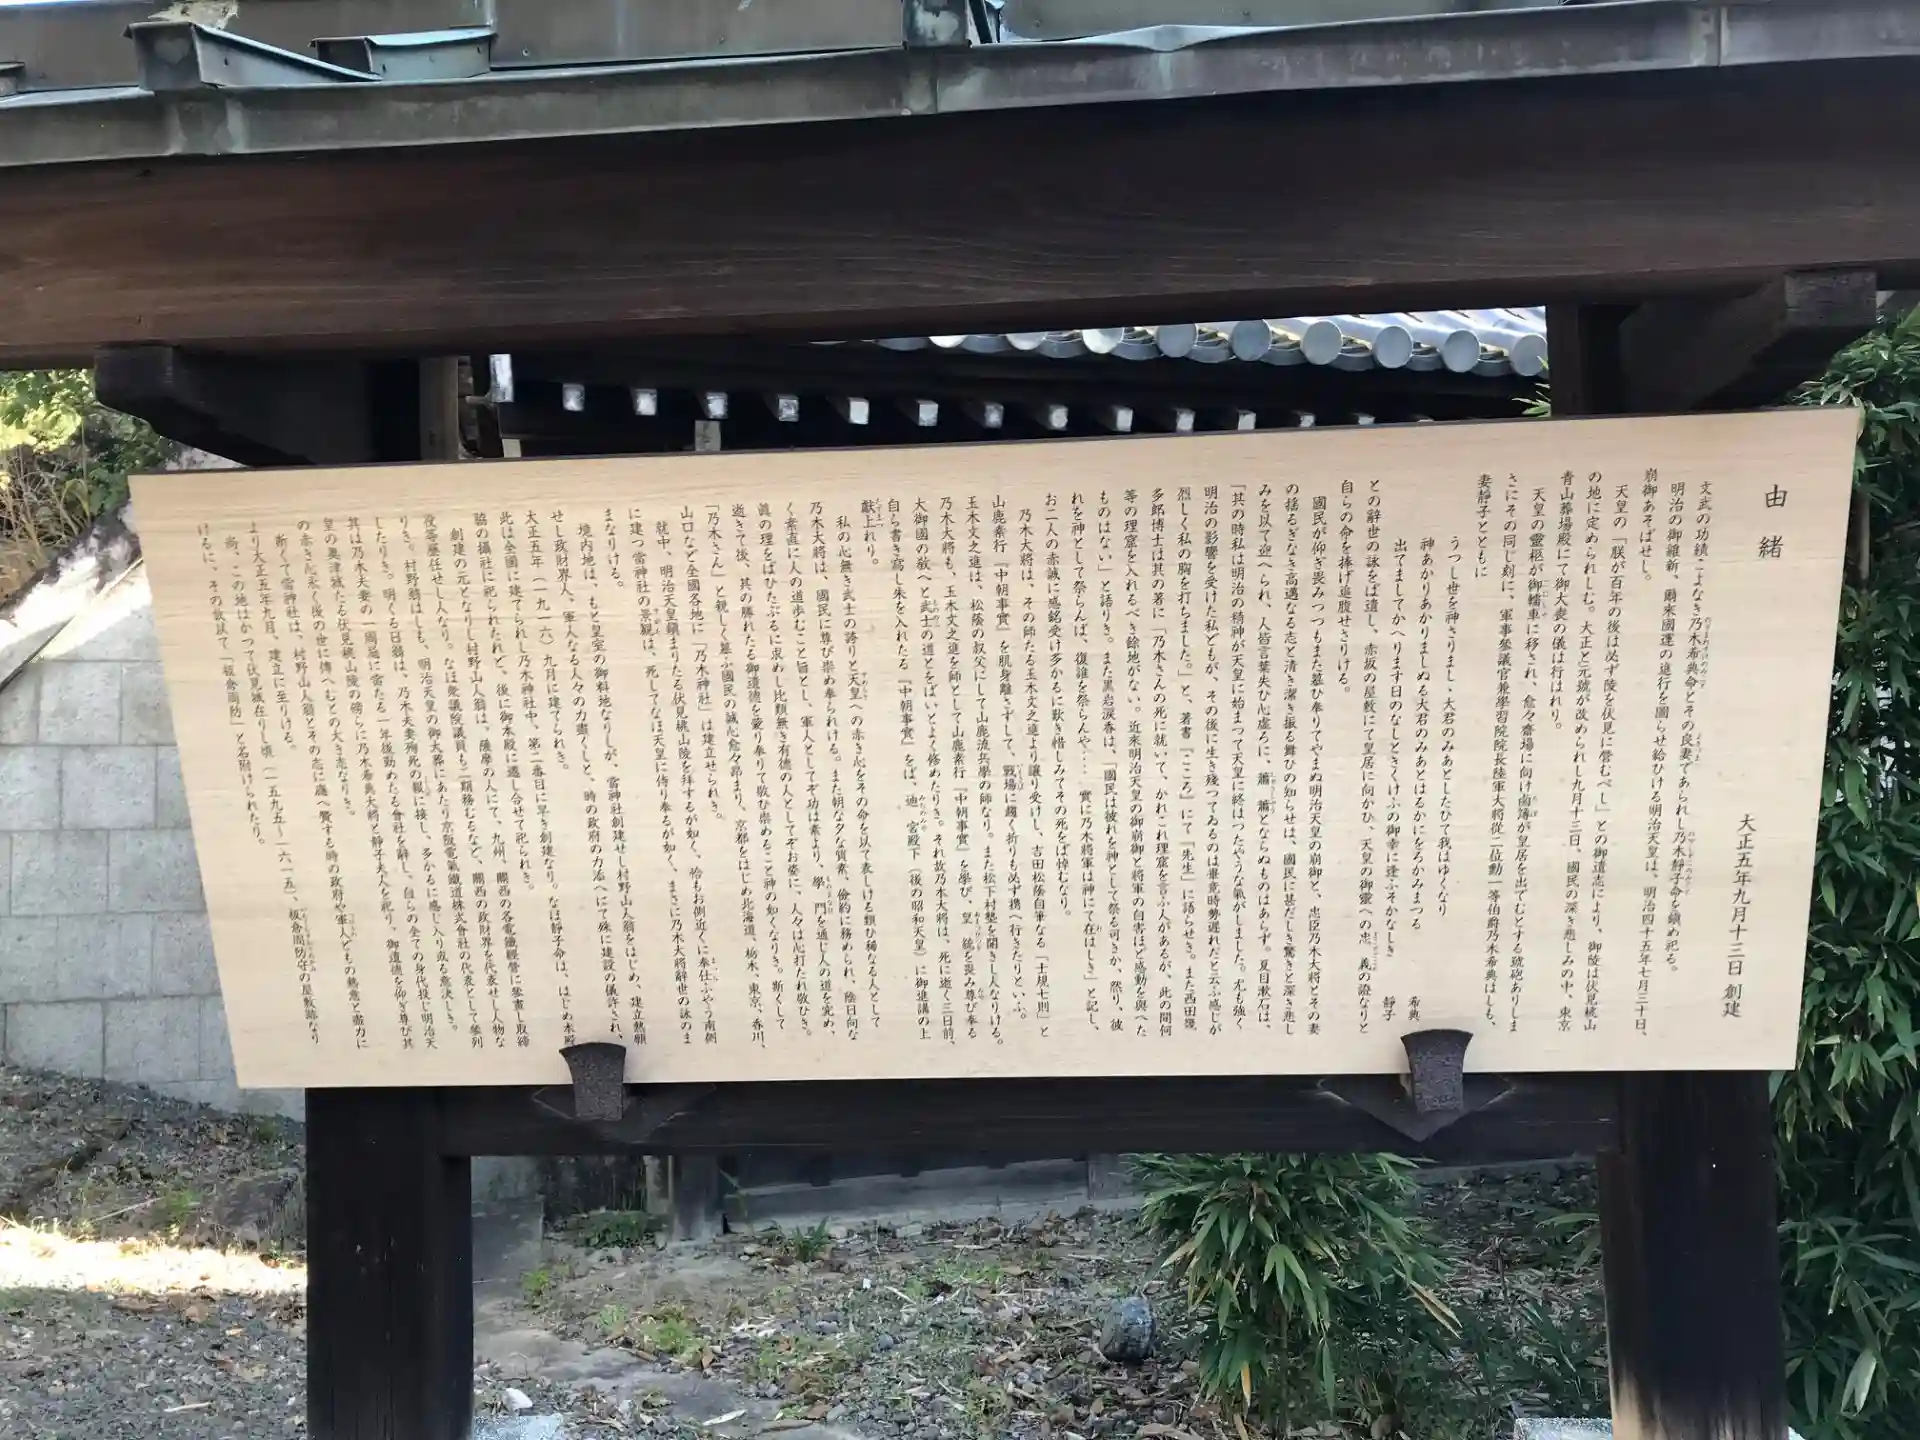 由緒
大正五年九月十三日 創建
文武の功績こよなき乃木希典命とその良妻であられし乃木静子命を鎮め祀る。
明治の御維新、爾來國運の進行を圖らせ給ひける明治天皇は、明治四十五年七月三十日、
崩御あそばせし。
天皇の「朕が百年の後は必ず陵を伏見に營むべし」との御遺志により、御陵は伏見桃山
の地に定められしむ。大正と元號が改められし九月十三日、國民の深き悲しみの中、東京
青山葬場殿にて御大喪の儀は行はれり。
天皇の靈柩が御轜車に移され、愈々齋場に向け鹵簿が皇居を出でむとする號砲ありしま
さにその同じ刻に、軍事參議官兼學習院院長陸軍大將從二位勳一等伯爵乃木希典はしも、
妻静子とともに
うつし世を神さりまし・大君のみあとしたひて我はゆくなり
神あかりあかりましぬる大君のみあとはるかにをろかみまつる
希典
出でましてかへります日のなしときくけふの御幸に逢ふそかなしき
静子
との辭世の詠をば遺し、赤坂の屋敷にて皇居に向かひ、天皇の御靈への忠、義の證なりと
自らの命を捧げ追腹せさりける。
國民が仰ぎ畏みつつもまた慕ひ奉りてやまぬ明治天皇の崩御と、忠臣乃木大將とその妻
の揺るぎなき高邁なる志と清き潔き振る舞ひの知らせは、國民に甚だしき驚きと深き悲し
みを以て迎へられ、人皆言葉失ひ心虚ろに、蕭 蕭とならぬものはあらず。夏目漱石は、
「其の時私は明治の精神が天皇に始まつて天皇に終はつたやうな氣がしました。尤も強く
明治の影響を受けた私どもが、その後に生き殘つてゐるのは畢竟時勢遅れだと云ふ感じが
烈しく私の胸を打ちました。」と、著書『こころ』にて「先生」に語らせき。また西田幾
多郎博士は其の著に「乃木さんの死に就いて、かれこれ理窟を言ふ人があるが、此の間何
等の理窟を入れるべき餘地がない。近來明治天皇の御崩御と將軍の自害ほど感動を與へた
ものはない」と語りき。また黒岩涙香は、「國民は彼れを神として祭る可きか、然り、彼
れを神として祭らんば、復誰を祭らんや… 實に乃木將軍は神にて在はしき」と記し、
お二人の赤誠に感銘受け多かるに歎き惜しみてその死をば悼むなり。
乃木大將は、その師たる玉木文之進より譲り受けし、吉田松蔭自筆なる「士規七則」と
山鹿素行『中朝事實』を肌身離さずして、戰場に鑓く折りも必ず携へ行きたりといふ。
玉木文之進は、松蔭の叔父にして山鹿流兵學の師なり。また松下村塾を開きし人なりける。
乃木大將も、玉木文之進を師として山鹿素行『中朝事實』を學び、皇 統を畏み尊び奉る
大御國の敎へと武士の道とをばいとよく修めたりき。それ故乃木大將は、死に逝く三日前、
自ら書き寫し朱を入れたる『中朝事實』をば、迪 宮殿下（後の昭和天皇）に御進講の上
獻上れり。
私の心無き武士の誇りと天皇への赤き心をその命を以て表しける類ひ稀なる人として
乃木大將は、國民に尊び崇め奉られける。また朝な夕な質素、儉約に務められ、陰日向な
く素直に人の道歩むこと旨とし、軍人としてぞ功は素より、學 門を通じ人の道を究め、
眞の理をばひたぶるに求めし比類無き有德の人としてぞお姿に、人々は心打たれ敬ひき。
逝きて後、其の勝れたる御道德を愛り奉りて敬ひ崇めること神の如くなりき。斯くして
「乃木さん」と親しく慕ふ國民の誠心愈々昂まり、京都をはじめ北海道、栃木、東京、香川、
山口など全國各地に「乃木神社」は建立せられき。
就中、明治天皇鎮まりたる伏見桃山陵を拜するが如く、恰もお側近くに奉仕ふやう南側
に建つ當神社の景觀は、死してなほ天皇に侍り奉るが如く、まさに乃木大將辭世の詠のま
まなりける。
境内地は、もと皇室の御料地なりしが、當神社創建せし村野山人翁をはじめ、建立熱願
せし政財界人、軍人なる人々の力盡くしと、時の政府の力添へにて殊に建設の儀許され、
大正五年（一九一六）九月に建てられき。
此は全國に建てられし乃木神社中、第二番目に早き創建なり。なほ静子命は、はじめ本殿
脇の攝社に祀られたれど、後に御本殿に遷し合せて祀られき。
創建の元となりし村野山人翁は、薩摩の人にて、九州、關西の各電鐵經營に參畫し取締
役等歴任せし人なり。なほ衆議院議員も二期務むるなど、關西の政財界を代表せし人物な
りき。村野翁はしも、明治天皇の御大葬にあたり京阪電氣鐵道株式會社の代表として參列
したりき。明くる日翁は、乃木夫妻殉死の報に接し、多かるに感じ入り或る意決しき。
其は乃木夫妻の一周忌に當たる一年後勤めたる會社を辭し、自らの全ての身代投じ明治天
皇の奧津城たる伏見桃山陵の傍らに乃木希典大將と静子夫人を祀り、御遺德を仰ぎ尊び其
の赤き心永く後の世に傳へむとの大き志なりき。
斯くて當神社は、村野山人翁とその志に應へ贊する時の政府や軍人どもの熱意と盡力に
より大正五年九月、建立に至りける。
尚、この地はかつて伏見城在りし頃（一五九五～一六一五）、板倉周防守の屋敷跡なり
けるに、その故以て「板倉周防」と名附けられたり。